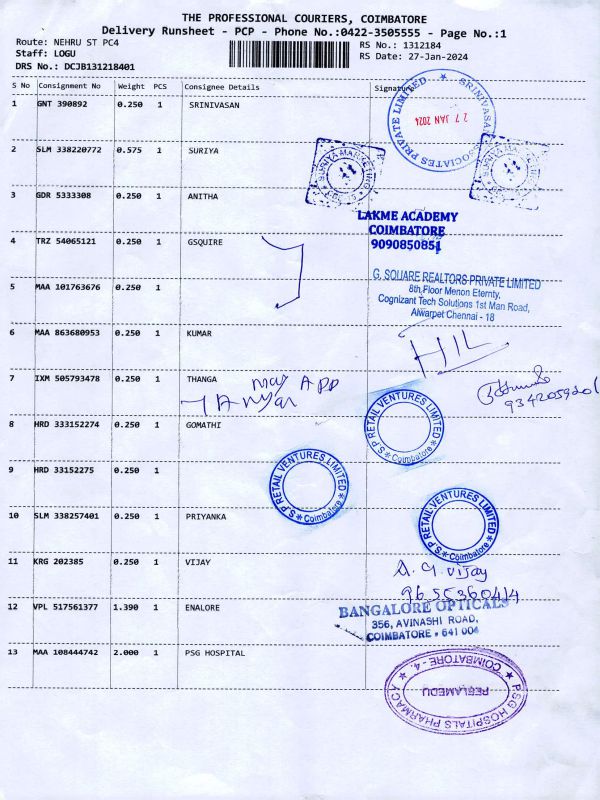 THE PROFESSIONAL COURIERS, COIMBATORE
Delivery Runsheet - PCP - Phone No.:0422-3505555 - Page No.:1
Route: NEHRU ST PC4
RS No.: 1312184
Staff: LOGU
RS Date: 27-Jan-2024
DRS No.: DCJB131218401
S No Consignment No Weight PCS Consignee Details Signature
1 GNT 390892 0.250 1 SRINIVASAN
PRIVATE LIMITED ★ SRINIVASA
27 JAN 2024
2 SLM 338220772 0.575 1 SURIYA
3 GDR 5333308 0.250 1 ANITHA
LAKME ACADEMY
COIMBATORE
9090850851
4 TRZ 54065121 0.250 1 GSQUIRE
5 MAA 101763676 0.250 1
G. SQUARE REALTORS PRIVATE LIMITED
8th Floor Menon Eternity,
Cognizant Tech Solutions 1st Man Road,
Alwarpet Chennai - 18
6 MAA 863680953 0.250 1 KUMAR
7 IXM 505793478 0.250 1 THANGA
8 HRD 333152274 0.250 1 GOMATHI
P.S.P RETAIL VENTURES LIMITED
Coimbatore
9 HRD 33152275 0.250 1
P.S.P RETAIL VENTURES LIMITED
Coimbatore
10 SLM 338257401 0.250 1 PRIYANKA
P.S.P RETAIL VENTURES LIMITED
Coimbatore
11 KRG 202385 0.250 1 VIJAY
A. G. Vijay
9655360414
12 VPL 517561377 1.390 1 ENALORE
BANGALORE OPTICALS
356, AVINASHI ROAD,
COIMBATORE - 641 004
13 MAA 108444742 2.000 1 PSG HOSPITAL
PSG HOSPITALS PHARMACY
PEELAMEDU
COIMBATORE - 4.